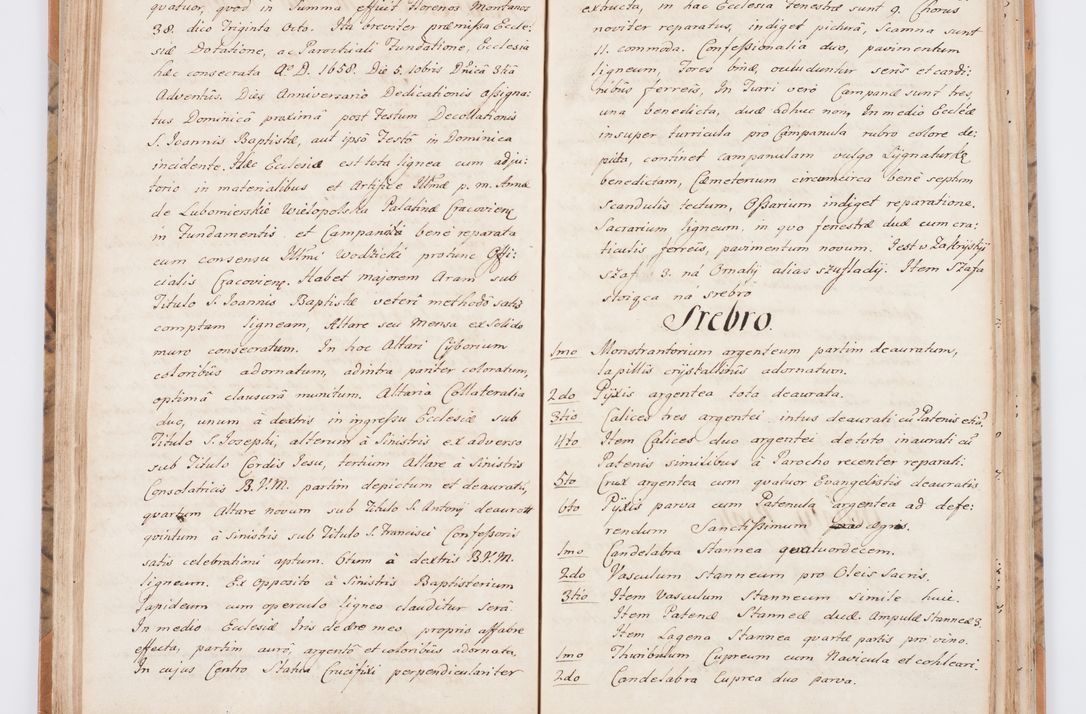 quatuor, quod in Summa efficit florenos Montanos
38. dico Triginta Octo. Ita breviter præmissa Eccle:
siæ Dotatione, ac Parochiali Fundatione, Ecclesia
hæc consecrata Aº. D. 1658. Die 5. 10bris Dnicâ 3tiâ
Adventûs. Dies Anniversario Dedicationis assigna:
tus Dominicâ proximâ post Festum Decollationis
S. Joannis Baptistæ, aut ipsô Festô in Dominica
incidente. Hæc Ecclesia est tota lignea cum adju:
torio in materialibus et Artifice Illmæ p. m. Annæ
de Lubomierskie Wielopolska Palatinæ Cracovien:
in Fundamentis et Campanili bene reparata
cum consensu Illmi Wodzicki protunc Offi:
cialis Cracovien. Habet majorem Aram sub
Titulo S. Joannis Baptistæ veteri methodô satis
comptam ligneam, Altare seu Mensa ex Solido
muro consecratum. In hoc Altari Cyborium
coloribûs adornatum, adintra pariter coloratum,
optimâ clausurâ munitum. Altaria Collateralia
duo, unum â dextris in ingressu Ecclesiæ sub
Titulo S. Josephi, alterum â Sinistris ex adverso
sub Titulo Cordis Jesu, tertium Altare â Sinistris
Consolatricis B.V.M. partim depictum et deauratu,
quartum Altare novum sub Titulo S. Antonij deauratt
quintum â Sinistris sub Titulo S. Francisci Confessoris
satis celebrationi aptum. Otum â dextris B.V.M.
ligneum. Ex opposito â Sinistris Baptisterium
lapideum cum operculo ligneo clauditur Serâ.
In medio Ecclesiæ Iris de ære meo proprio affabre
effecta, partim aurô, argentô et coloribus adornata.
In cujus Centro Statua Crucifixi perpendiculariter
exbucta, in hac Ecclesia fenestræ sunt 9. Chorus
noviter reparatus, indiget picturâ, Scamna sunt
11. commoda. Confessionalia duo, pavimentum
ligneum, Fores binæ, ocluduntur seris et cardi:
nibûs ferreis, In Turi verô Campanæ sunt tres
una benedicta, duæ adhuc non, In medio Ecclæ
insuper turricula pro Campanula rubro colore de:
picta, continet campanulam vulgo Sygnaturkę
benedictam, Cæmeterium circumcirca benè septum
Scandulis tectum, Ossarium indiget reparatione.
Sacrarium ligneum, in quo fenestræ duæ cum cra:
ticulis ferreis, pavimentum novum. Jest w Zakrystyi
szaf 3. na Ornaty alias szuflady. Item Szafa
stoiąca na srebro
Srebro.
1mo Monstrantorium argenteum partim deauratum,
lapillis crystallinis adornatum.
2do Pyxis argentea tota deaurata.
3tio Calices tres argentei intus deaurati cũ Patenis etia.
4to Item Calices duo argentei de toto inaurati cũ
Patenis similibus â Parocho recenter reparati.
5to Crux argentea cum quatuor Evangelistis deauratis
6to Pyxis parva cum Patenula argentea ad defe:
rendum Sanctissimum ad ægros.
1mo Candelabra Stannea quatuordecem.
2do Vasculum stanneum pro Oleis Sacris.
3tio Item Vasculum Stanneum simile huic.
Item Patenæ Stanneæ duæ. Ampulæ Stanneæ 3.
Item Lagena Stannea quartæ partis pro vino.
1mo Thuribulum Cupreum cum Navicula et cohleari.
2do Candelabra Cuprea duo parva.